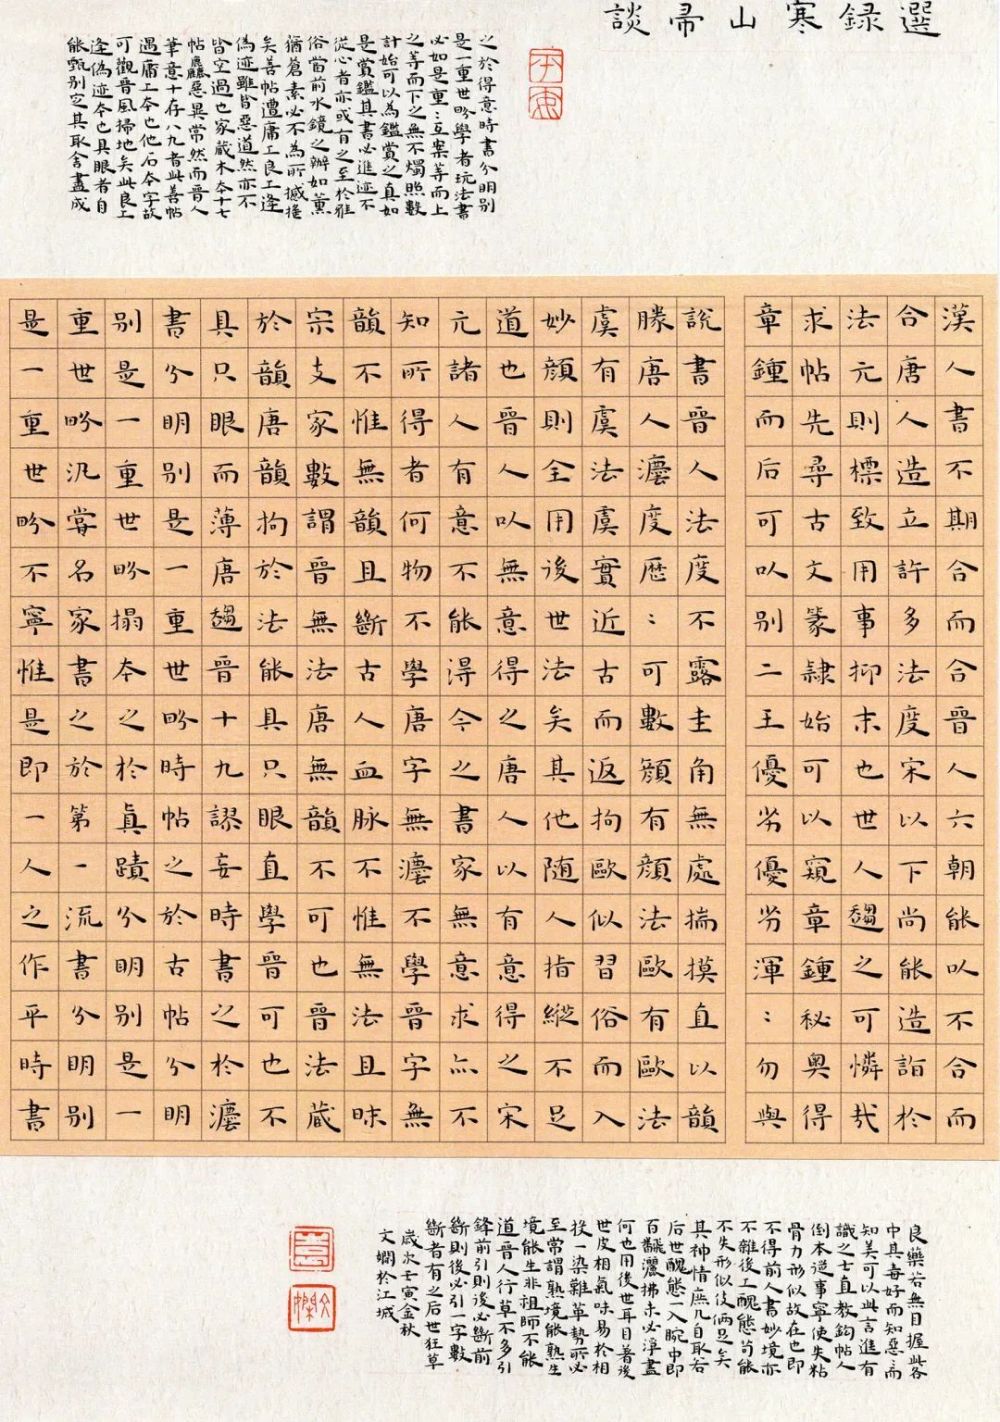 選録寒山帚談
之於得意時書分明別
是一重世畛學者玩法書
必如是重:立案等而上
之等而下之無不燭照數
計始可以為鑑賞之真如
是賞鑑其書必進迹不
從心者亦或有之至於雅
俗當前水鏡之辦如薰
猶蒼素必不為所撼捶
矣善帖遭庸工良工逢
偽迹雖皆惡道然亦不
皆空過也家蔵木本十七
帖麤惡異常然而晉人
筆意十存八九者此善帖
遇庸工本也他石本字故
可觀晉風掃地矣此良工
逢偽迹本也具眼者自
能甄別它其取舍盡成
漢人書不期合而合晉人六朝能以不合而
合唐人造立許多法度宋以下尚能造詣於
法元則標致用事抑末也世人趨之可憐哉
求帖先尋古文篆隸始可以窺章鍾秘奧得
章鍾而后可以別二王優劣優劣渾:勿與
說書晉人法度不露圭角無處揣摸直以韻
勝唐人灋度歷:可數顏有顏法歐有歐法
虞有虞法虞實近古而返拘歐似習俗而入
妙顏則全用後世法矣其他随人指縱不足
道也晉人以無意得之唐人以有意得之宋
元諸人有意不能得今之書家無意求亦不
知所得者何物不學唐字無灋不學晉字無
韻不惟無韻且斷古人血脉不惟無法且昧
宗支家數謂晉無法唐無韻不可也晉法蔵
於韻唐韻拘於法能具只眼直學晉可也不
具只眼而薄唐趨晉十九謬妄時書之於灋
書分明別是一重世畛時帖之於古帖分明
別是一重世畛搨本之於真蹟分明別是一
重世畛況嘗名家書之於第一流書分明別
是一重世畛不寧惟是即一人之作平時書
良藥若無目握此各
中其毒好而知惡:而
知美可以此言進有
識之士直教鈎帖人
倒本逆事寧使失粘
骨力形似故在也即
不得前人書妙境亦
不雜後工醜態苟能
不失形似伎倆足矣
其神情庶几自取若
后世醜態一入腕中即
百飜灑拂未必淨盡
何也用後世耳目著後
世皮相氣味易於相
投一染難革勢所必
至常謂熟境能熟生
境能生非祖師不能
道晉人行草不多引
鋒前引則後必斷前
斷則後必引一字數
斷者有之后世狂草
歲次壬寅金秋
文嫻於江城